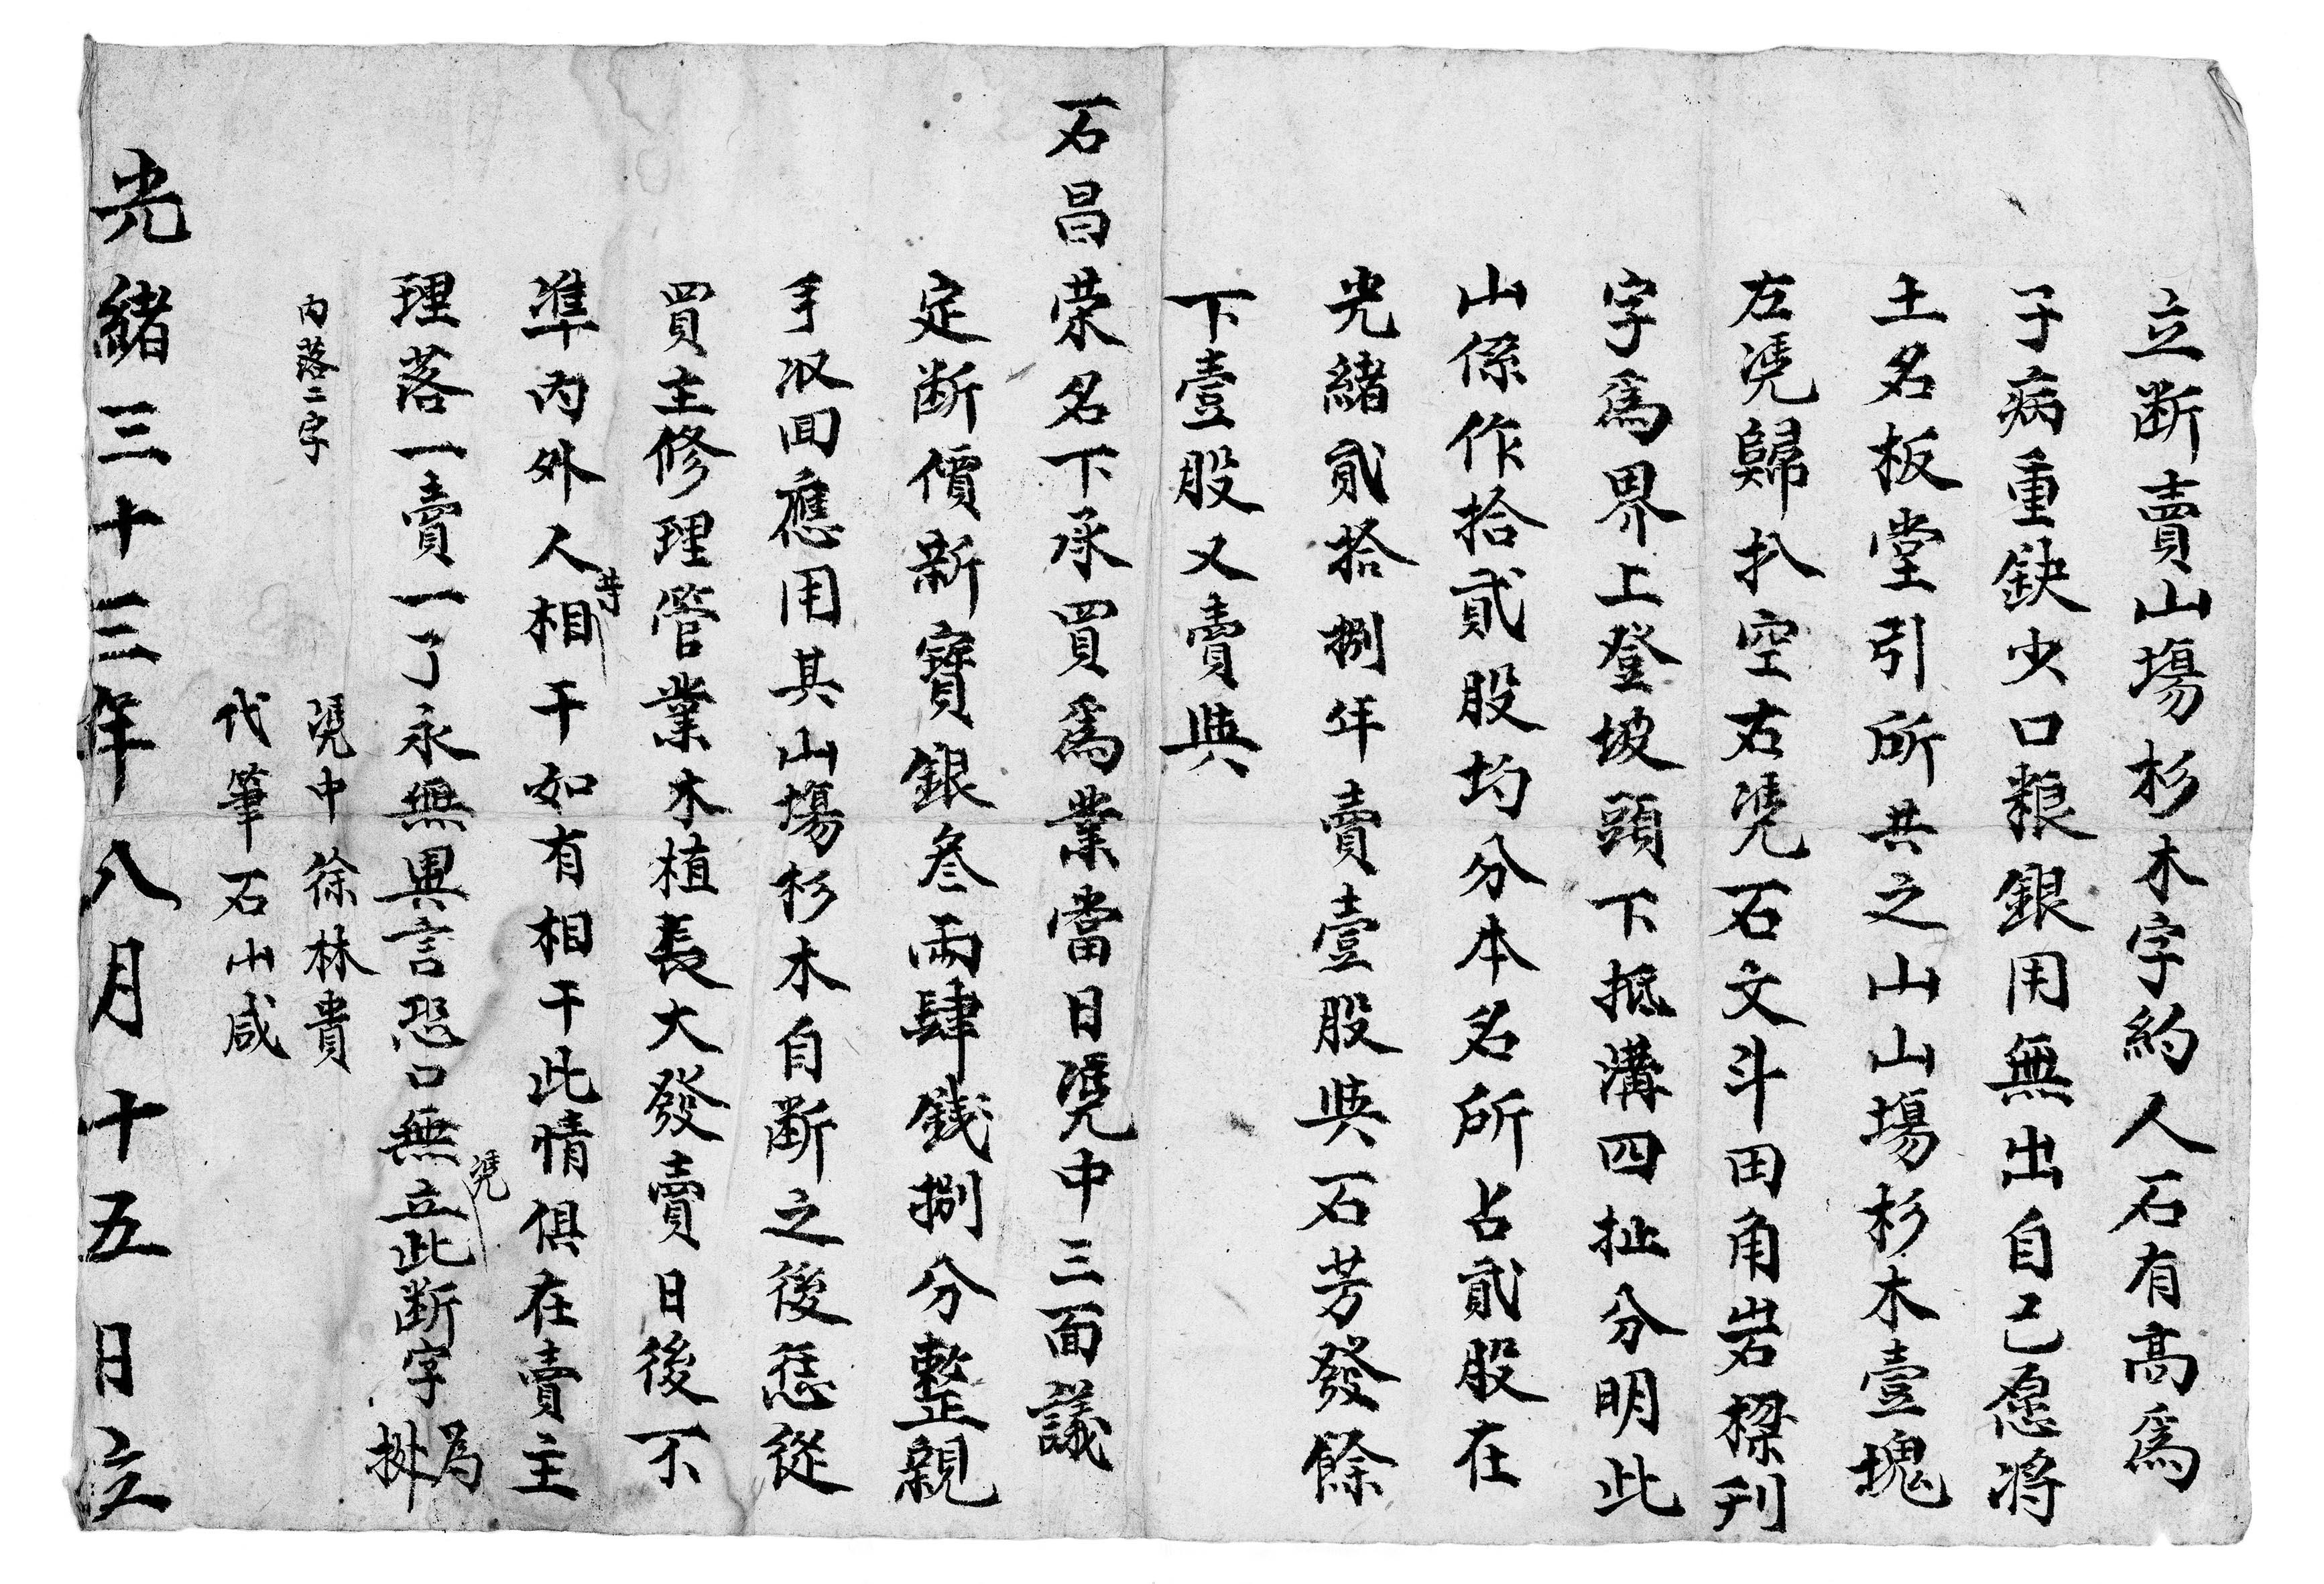 立断賣山塲杉木字約人石有高爲
子病重鈌少口粮銀用無出自己愿将
土名板堂引所共之山山塲杉木壹塊
左凴歸扒空右凴石文斗田角岩樑刊
字爲界上登坡頭下抵溝四扯分明此
山係作拾貳股均分本名所占貳股在
光緒貳拾捌年賣壹股與石芳發餘
下壹股又賣與
石昌荣名下承買爲業當日凴中三面議
定断價新寶銀叁両肆錢捌分整親
手收囬應用其山塲杉木自断之後恁從
買主修理管業木植長大發賣日後不
凖内外人等相干如有相干此情俱在賣主
理落一賣一了永無異言恐口無凴立此断字為㨿
内落二字
凴中徐林貴
代筆石山咸
光緒三十三年八月十五日立